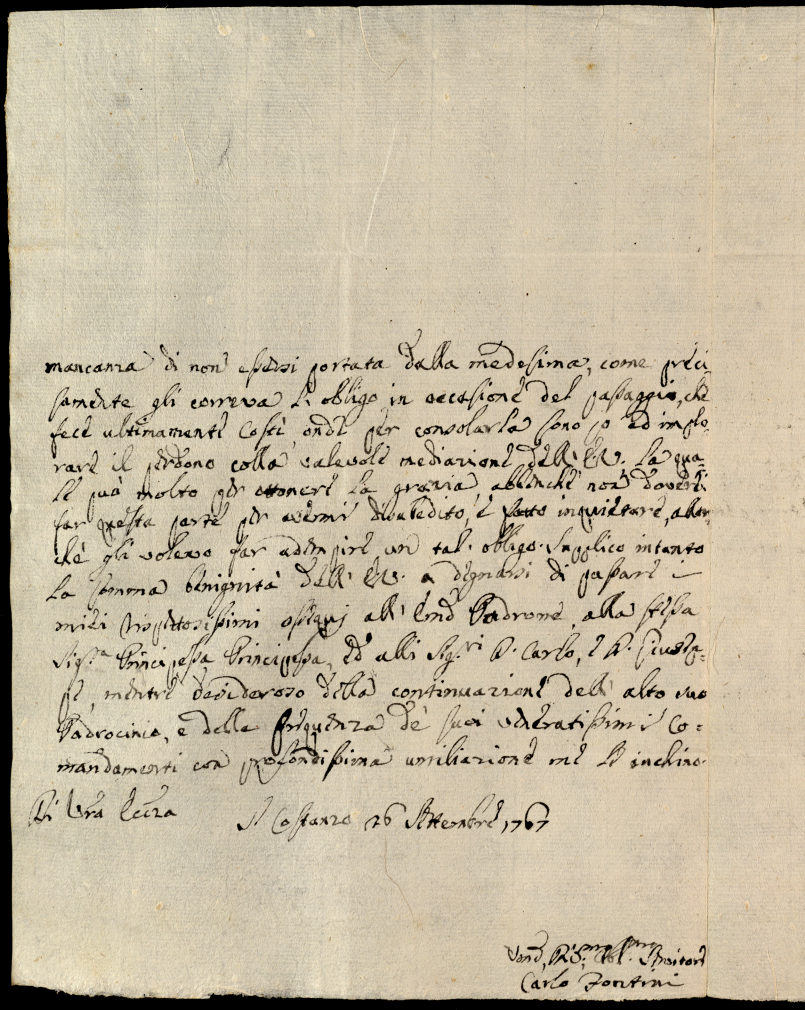 mancanza di non essersi portata dalla medesima, come preci
samente gli correva l'obligo in occasione del passaggio, che
fece ultimamente costì onde per consolarla sono jo ad implo-
rare il perdono colla valevole mediazione dell' E.V. la qua-
le può molto per ottenere la grazia abbenche non doverei
far questa parte per avermi disubedito, e fatto inquietare, allor
che gli volevo far adempire un tal obligo. Supplico intanto
la somma benignità dell' E.V. a degnarsi di passare i
miei rispettosissimi ossequj all' Emõ Padrone, alla stessa
Sig.ra Principessa Principessa, ed alli Sig.ri D. Carlo, e D.
se, mentre desideroso della continuazione dell' alto suo
Padrocinio, e della frequenza de suoi veneratissimi co=
mandamenti con profondissima umiliazione me le inchino.
Di Vrã Eccza
S. Costanzo 26 Settembre 1767
Carlo Fontini